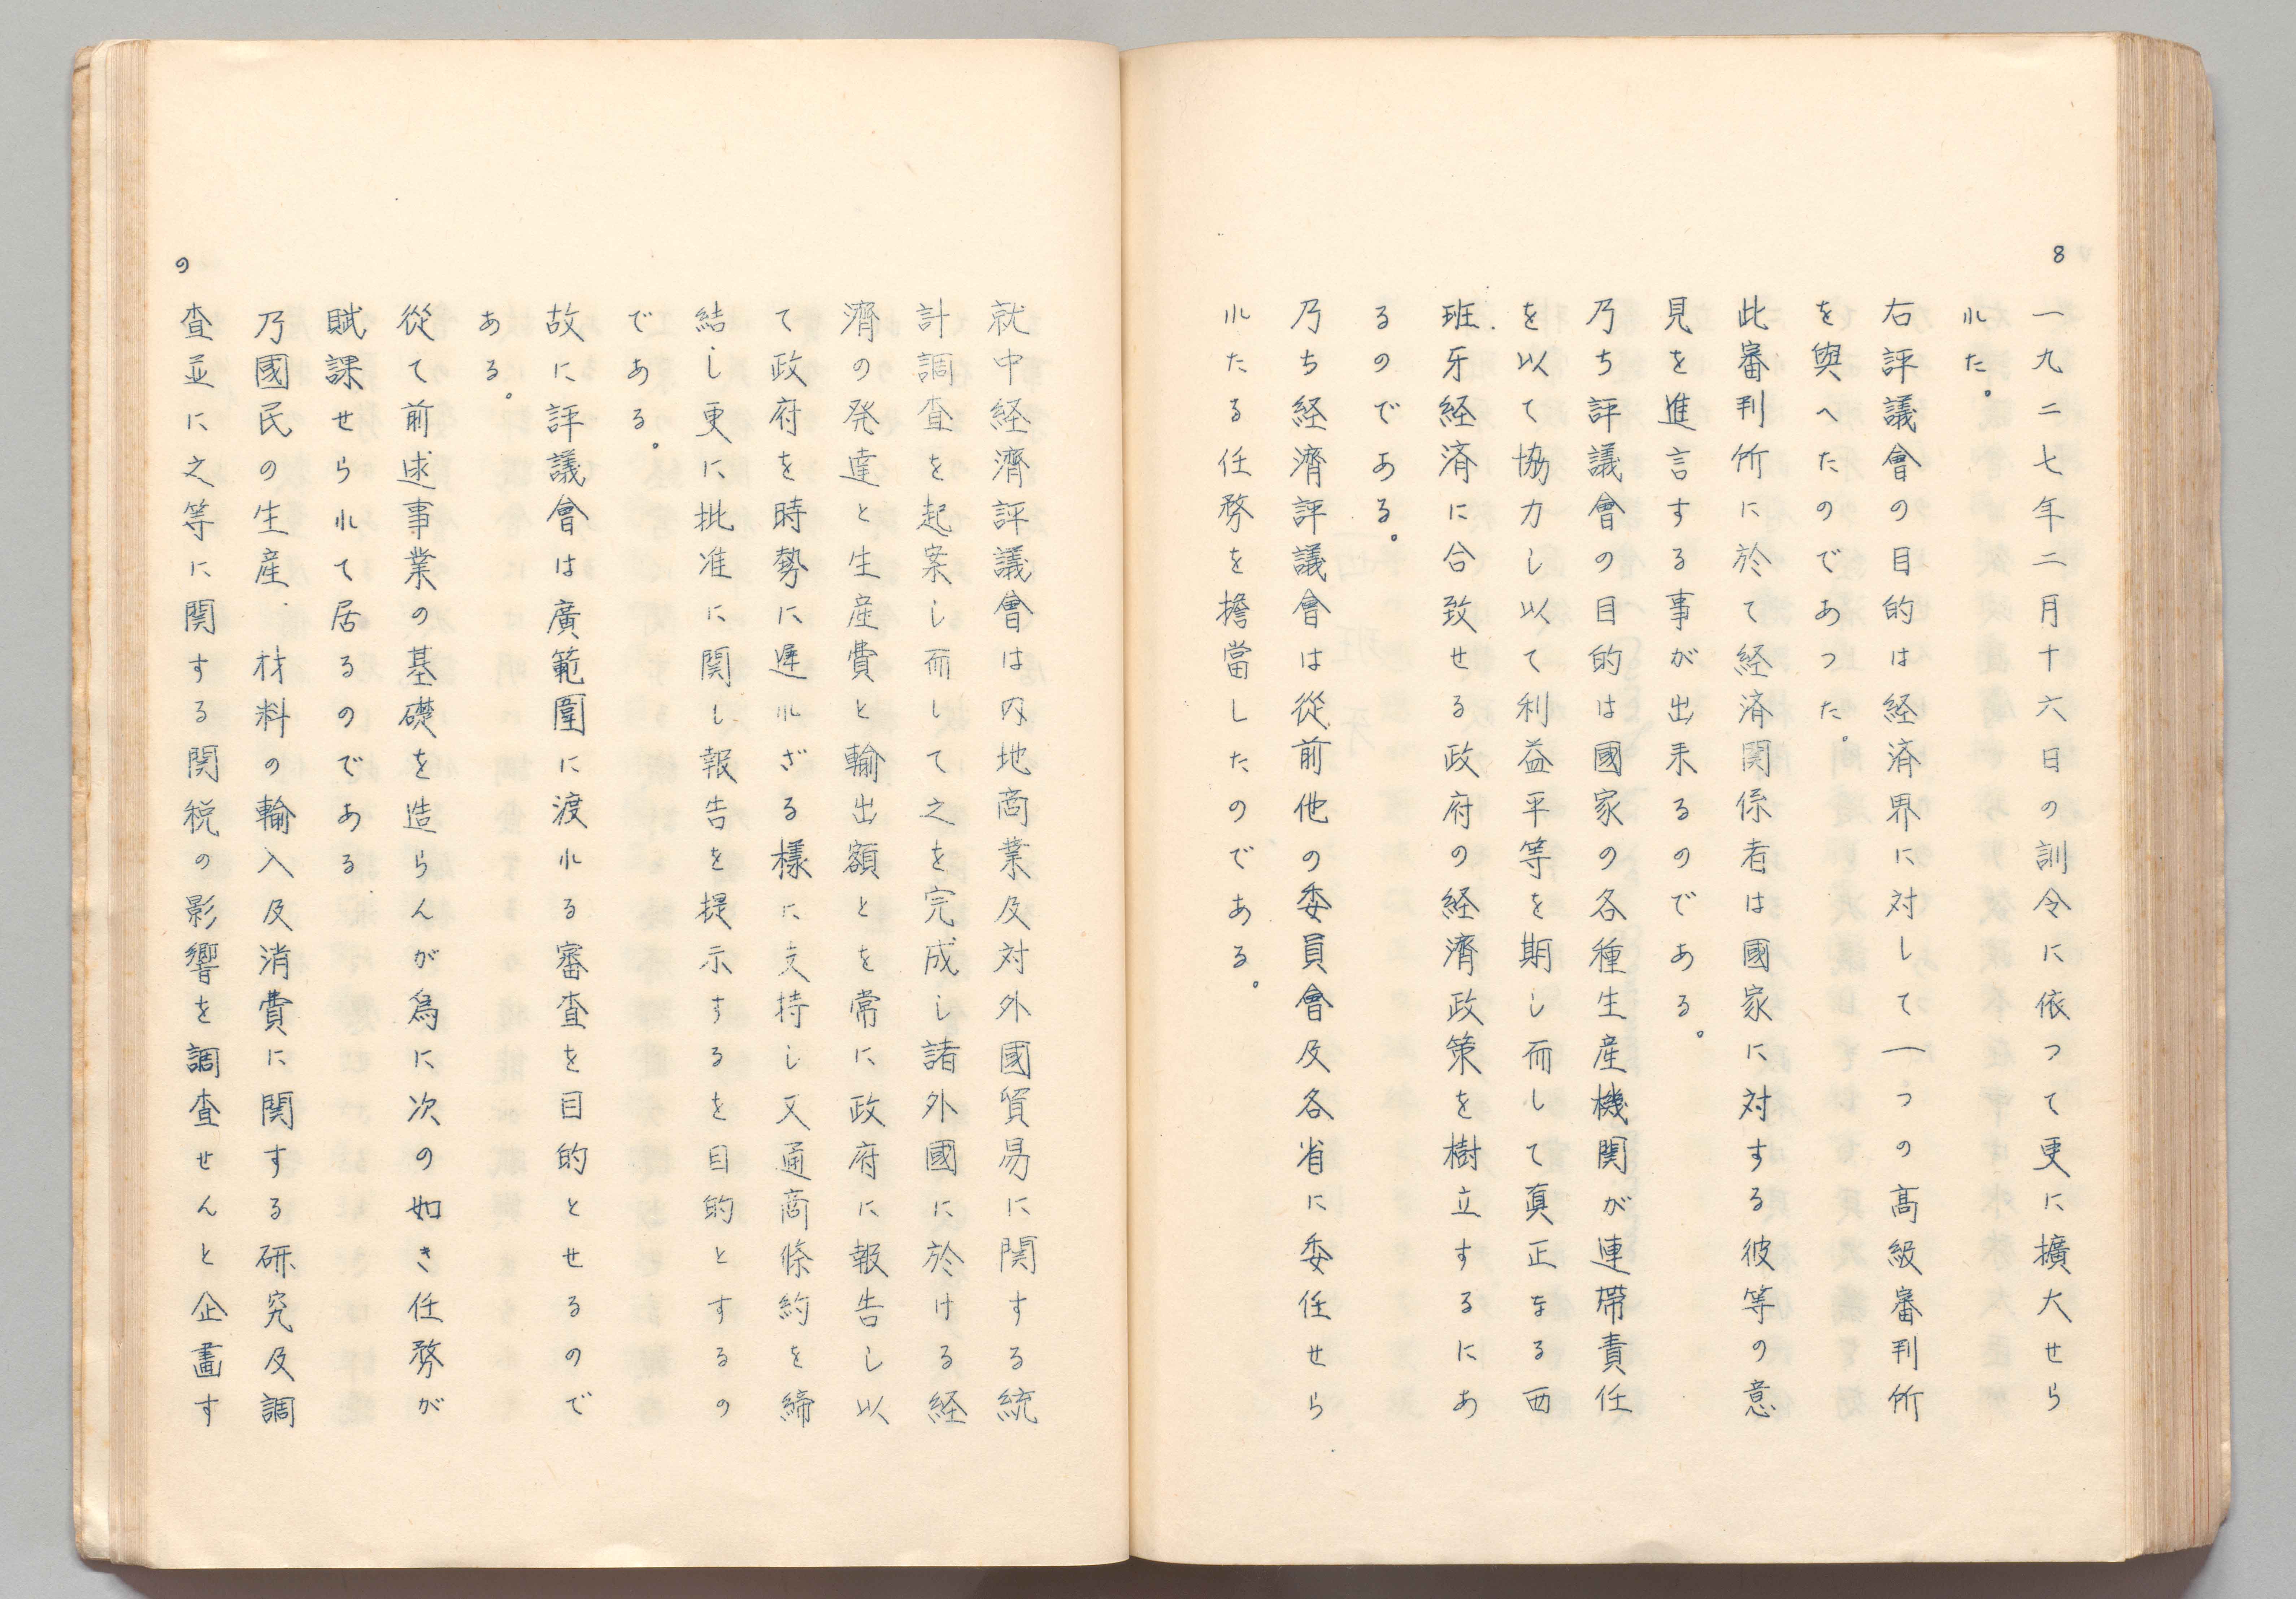 8
一九二七年二月十六日の訓令に依つて更に擴大せら
れた。
右評議會の目的は経済界に対して一つの高級審判所
を與へたのであつた。
此審判所に於て経済関係者は國家に対する彼等の意
見を進言する事が出来るのである。
乃ち評議會の目的は國家の各種生産機関が連帯責任
を以て協力し以て利益平等を期し而して眞正なる西
班牙経済に合致せる政府の経濟政策を樹立するにあ
るのである。
乃ち経濟評議會は從前他の委員會及各省に委任せら
れたる任務を擔當したのである。
就中経濟評議會は内地商業及対外國貿易に関する統
計調査を起案し而して之を完成し諸外國に於ける経
濟の発達と生産費と輸出額とを常に政府に報告し以
て政府を時勢に遅れざる様に支持し又通商條約を締
結し更に批准に関し報告を提示するを目的とするの
である。
故に評議會は廣範圍に渡れる審査を目的とせるので
ある。
從て前述事業の基礎を造らんが為に次の如き任務が
賦課せられて居るのである
乃國民の生産．材料の輸入及消費に関する研究及調
査並に之等に関する関税の影響を調査せんと企畫す
9